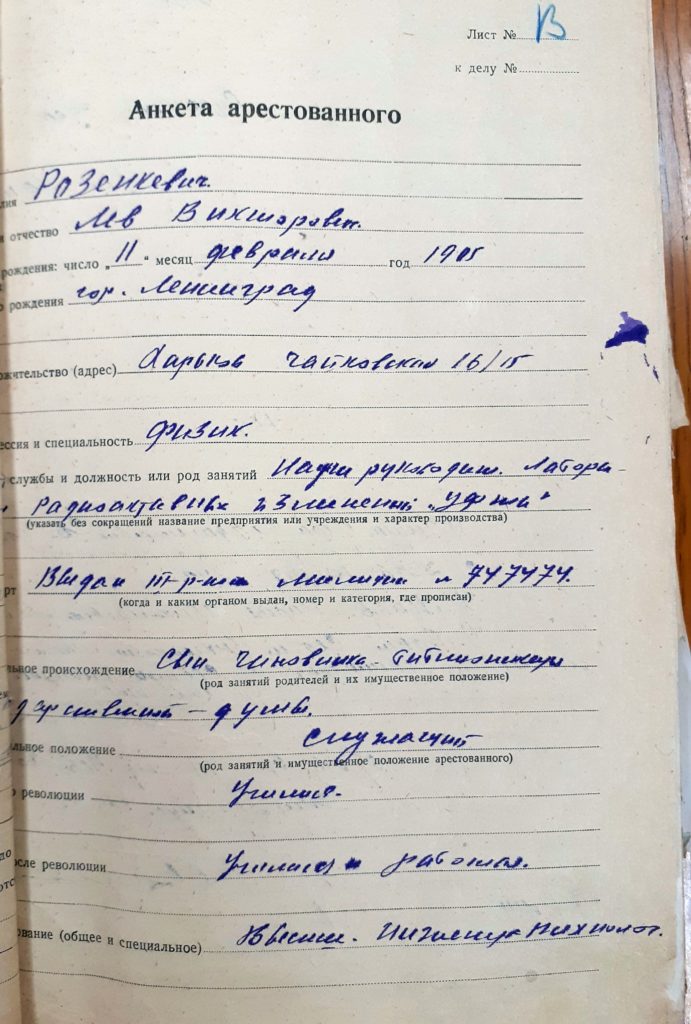 Лист № В
к делу №
Анкета арестованного
лия Розенкевич.
и отчество Лев Викторович.
рождения: число „ 11 “ месяц февраля год 1905
о рождения гор. Ленинград
ожительство (адрес) Харьков Чайковская 16/15
ессия и специальность физик.
службы и должность или род занятий Научн руководит. Лабора-
Радиоактивных измнений „УФТИ“
(указать без сокращений название предприятия или учреждения и характер производства)
рт Выдан III р-ном милиции № 747474.
(когда и каким органом выдан, номер и категория, где прописан)
льное происхождение Сын чиновника
(род занятий родителей и их имущественное положение)
дарственной – думы.
льное положение служащий
(род занятий и имущественное положение арестованного)
о революции Учился.
осле революции Учился и работал.
ование (общее и специальное) Высшее. Инженер технолог.